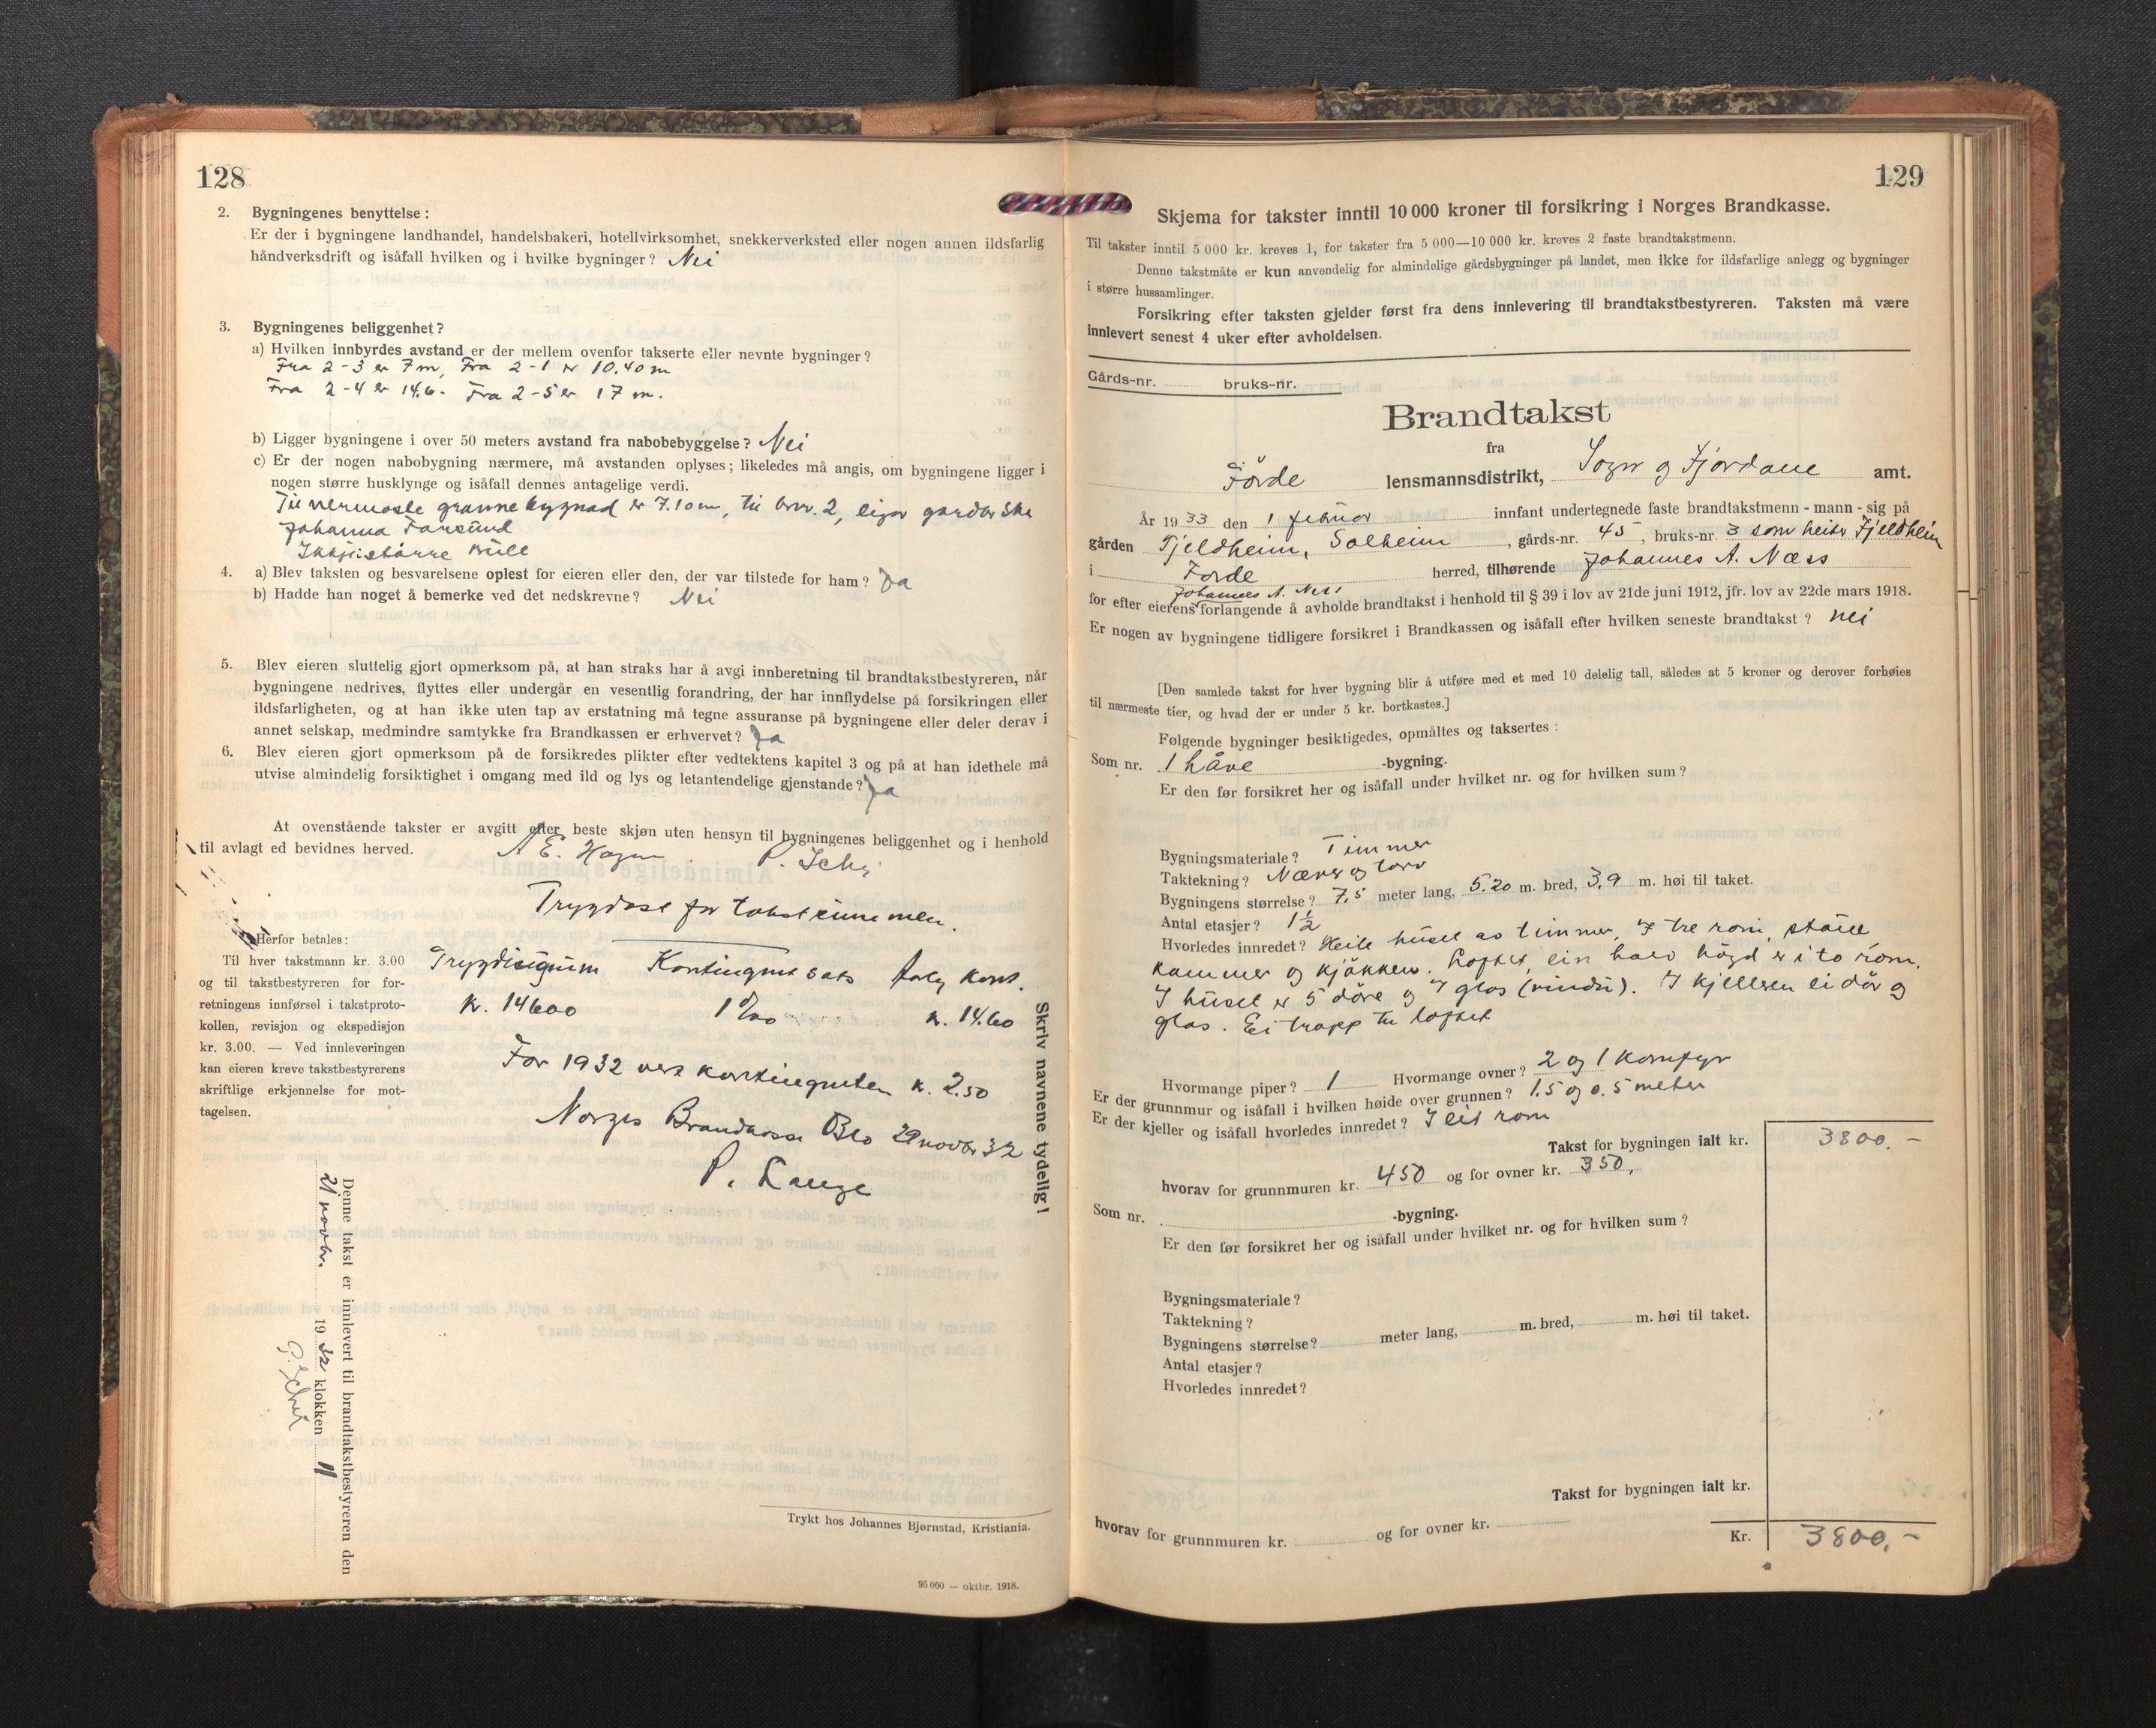 128
2. Bygningenes benyttelse:
Er der i bygningene landhandel, handelsbakeri, hotellvirksomhet, snekkerverksted eller nogen annen ildsfarlig
håndverksdrift og isåfall hvilken og i hvilke bygninger? Nei
3. Bygningenes beliggenhet?
a) Hvilken innbyrdes avstand er der mellem ovenfor takserte eller nevnte bygninger?
Fra 2-3 er 7 m, Fra 2-1 er 10.40 m
Fra 2-4 er 14.6. Fra 2-5 er 17 m.
b) Ligger bygningene i over 50 meters avstand fra nabobebyggelse? Nei
c) Er der nogen nabobygning nærmere, må avstanden oplyses; likeledes må angis, om bygningene ligger i
nogen større husklynge og isåfall dennes antagelige verdi.
Til nermaste grannebygnad er 7.10 m, til bnr. 2, eigar
Johanna Farsund
Ikkje større
4. a) Blev taksten og besvarelsene oplest for eieren eller den, der var tilstede for ham? Ja
b) Hadde han noget å bemerke ved det nedskrevne? Nei
5. Blev eieren sluttelig gjort opmerksom på, at han straks har å avgi innberetning til brandtakstbestyreren, når
bygningene nedrives, flyttes eller undergår en vesentlig forandring, der har innflydelse på forsikringen eller
ildsfarligheten, og at han ikke uten tap av erstatning må tegne assuranse på bygningene eller deler derav i
annet selskap, medmindre samtykke fra Brandkassen er erhvervet? Ja
6. Blev eieren gjort opmerksom på de forsikredes plikter efter vedtektens kapitel 3 og på at han idethele må
utvise almindelig forsiktighet i omgang med ild og lys og letantendelige gjenstande? Ja
At ovenstående takster er avgitt efter beste skjøn uten hensyn til bygningenes beliggenhet og i henhold
til avlagt ed bevidnes herved. A E. P.
for
Herfor betales:
Til hver takstmann kr. 3.00
og til takstbestyreren for for-
retningens innførsel i takstproto-
kollen, revisjon og ekspedisjon
kr. 3.00. — Ved innleveringen
kan eieren kreve takstbestyrerens
skriftlige erkjennelse for mot-
tagelsen.
Kontingent sats kont.
kr. 14600 1 ‰ kr. 14.60
For 1932 vert kontingenten kr. 2.50
Norges Brandkasse Oslo 29 novbr 32
P. Lange
Skriv navnene tydelig!
Denne takst er innlevert til brandtakstbestyreren den
21 novbr. 1932 klokken 11
Trykt hos Johannes Bjørnstad, Kristiania.
95 000 — oktbr. 1918.
129
Skjema for takster inntil 10 000 kroner til forsikring i Norges Brandkasse.
Til takster inntil 5 000 kr. kreves 1, for takster fra 5 000—10 000 kr. kreves 2 faste brandtakstmenn.
Denne takstmåte er kun anvendelig for almindelige gårdsbygninger på landet, men ikke for ildsfarlige anlegg og bygninger
i større hussamlinger.
Forsikring efter taksten gjelder først fra dens innlevering til brandtakstbestyreren. Taksten må være
innlevert senest 4 uker efter avholdelsen.
Gårds-nr. bruks-nr.
Brandtakst
fra
Förde lensmannsdistrikt, Sogn og Fjordane amt.
År 1933 den 1 februar innfant undertegnede faste brandtakstmenn - mann - sig på
gården Fjeldheim, Solheim, gårds-nr. 45, bruks-nr. 3 som heiter Fjeldheim
i Förde herred, tilhørende Johannes A. Næss
Johannes A. Ness
for efter eierens forlangende å avholde brandtakst i henhold til § 39 i lov av 21de juni 1912, jfr. lov av 22de mars 1918.
Er nogen av bygningene tidligere forsikret i Brandkassen og isåfall efter hvilken seneste brandtakst? nei
[Den samlede takst for hver bygning blir å utføre med et med 10 delelig tall, således at 5 kroner og derover forhøies
til nærmeste tier, og hvad der er under 5 kr. bortkastes.]
Følgende bygninger besiktigedes, opmåltes og taksertes:
Som nr. 1 håve -bygning.
Er den før forsikret her og isåfall under hvilket nr. og for hvilken sum?
Bygningsmateriale? Timmer
Taktekning? Næver og torv
Bygningens størrelse? 7,5 meter lang, 5.20 m. bred, 3,9 m. høi til taket.
Antal etasjer? 1½
Hvorledes innredet? Heile huset av timmer, I tre rom, stove,
kammer og kjökken. Loftet, ein halv högd er i to rom.
I huset er 5 döre og 7 glas (vindu). I kjelleren ei dör og
glas. Ei trapp til loftet.
Hvormange piper? 1 Hvormange ovner? 2 og 1 komfyr
Er der grunnmur og isåfall i hvilken høide over grunnen? 1.5 og 0.5 meter
Er der kjeller og isåfall hvorledes innredet? I eit rom
Takst for bygningen ialt kr. 3800.-
hvorav for grunnmuren kr. 450 og for ovner kr. 350,
Som nr. -bygning.
Er den før forsikret her og isåfall under hvilket nr. og for hvilken sum?
Bygningsmateriale?
Taktekning?
Bygningens størrelse? meter lang, m. bred, m. høi til taket.
Antal etasjer?
Hvorledes innredet?
Takst for bygningen ialt kr.
hvorav for grunnmuren kr. og for ovner kr.
Kr. 3800,-